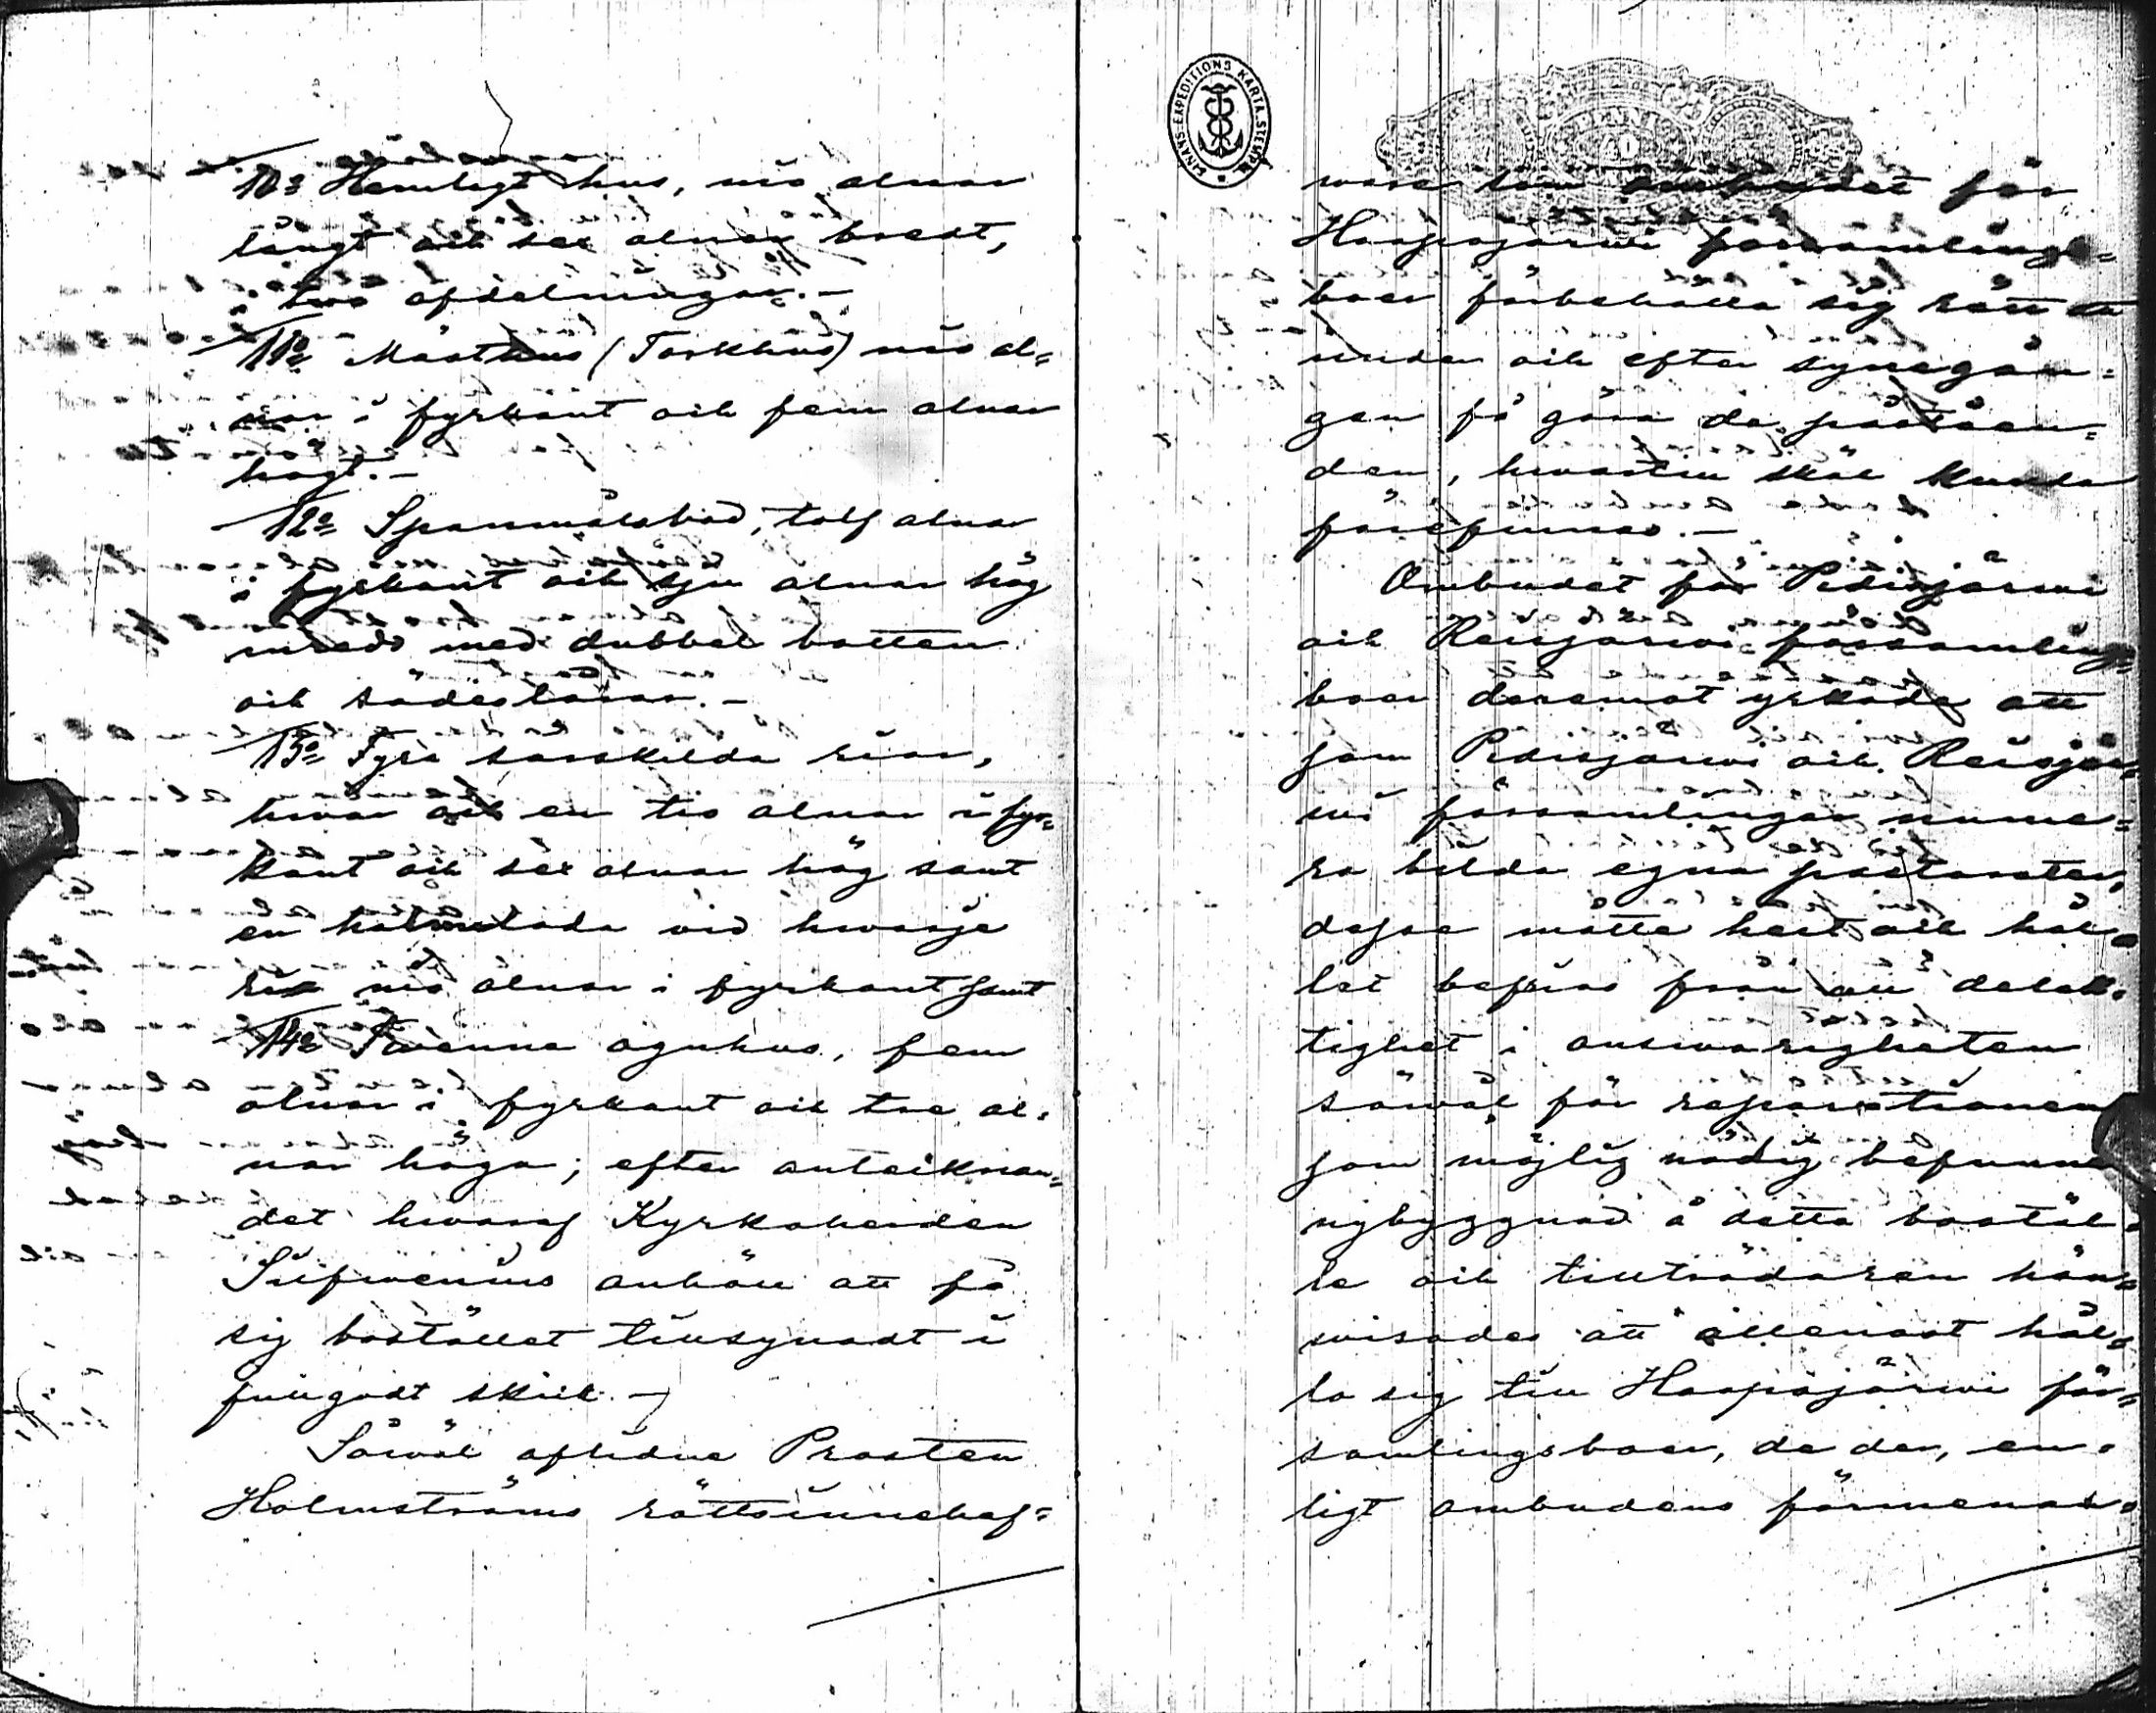 10º Hemligt hus, nio alnar
långt och sex alnar bredt,
i två afdelningar.-
11º Mästhus (Torkhus) nio al=
nar i fyrkant och fem alnar
högt.-
12º Spanmålsbod, tolf alnar
i fyrkant och sju alnar hög
inredd med dubbel botten
och sädeslårar.-
13º Fyra särskilda riar,
hvar och en tio alnar i fyr=
kant och sex alnar hög samt
en halmlada vid hwarje
ria nio alnar i fyrkant samt
14º Tvenne agnhus, fem
alnar i fyrkant och tre al=
nar höga; efter antecknan=
det hwaraf Kyrkoherden
anhöll att få
sig bostället tillsynadt i
fullgodt skick.-
Såwäl aflidne Prosten
Holmströms rättsinnehaf=
FINANS-EXPEDITIONS KARTA. STEMPEL
PENNI
ware som ombudet för
Haapajärwi församlings=
boer förbehålla sig rätt att
under och efter synegån=
gen få göra de påståen=
den, hwartill skäl kunde
förefinnas.-
Ombudet för Pidisjärwi
och Reisjärwi församlings=
boer deremot yrkade att
som Pidisjärwi och Reisjär=
wi församlingar nume=
ra bilda egna pastorater,
dessa måtte helt och hål=
let befrias från all delak=
tighet i answarigheten
såwäl för reparationen
som möjlig nödig befunnen
nybyggnad å detta bostäl=
le och tillträdaren hän=
wisades att allenast hål=
la sig till Haapajärwi för=
samlingsboer, de der, en=
ligt ombudens förmenan=